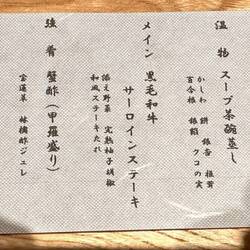 温物 スープ茶碗蒸し
かしわ 餅 銀杏 椎茸
百合根 銀餡 クコの実
メイン 黒毛和牛
サーロインステーキ
添え野菜 完熟柚子胡椒
和風ステーキたれ
強肴 蟹酢（甲羅盛り）
宝蓮草 林檎酢ジュレ